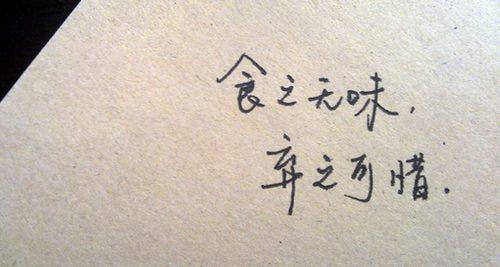 食之无味，
弃之可惜．